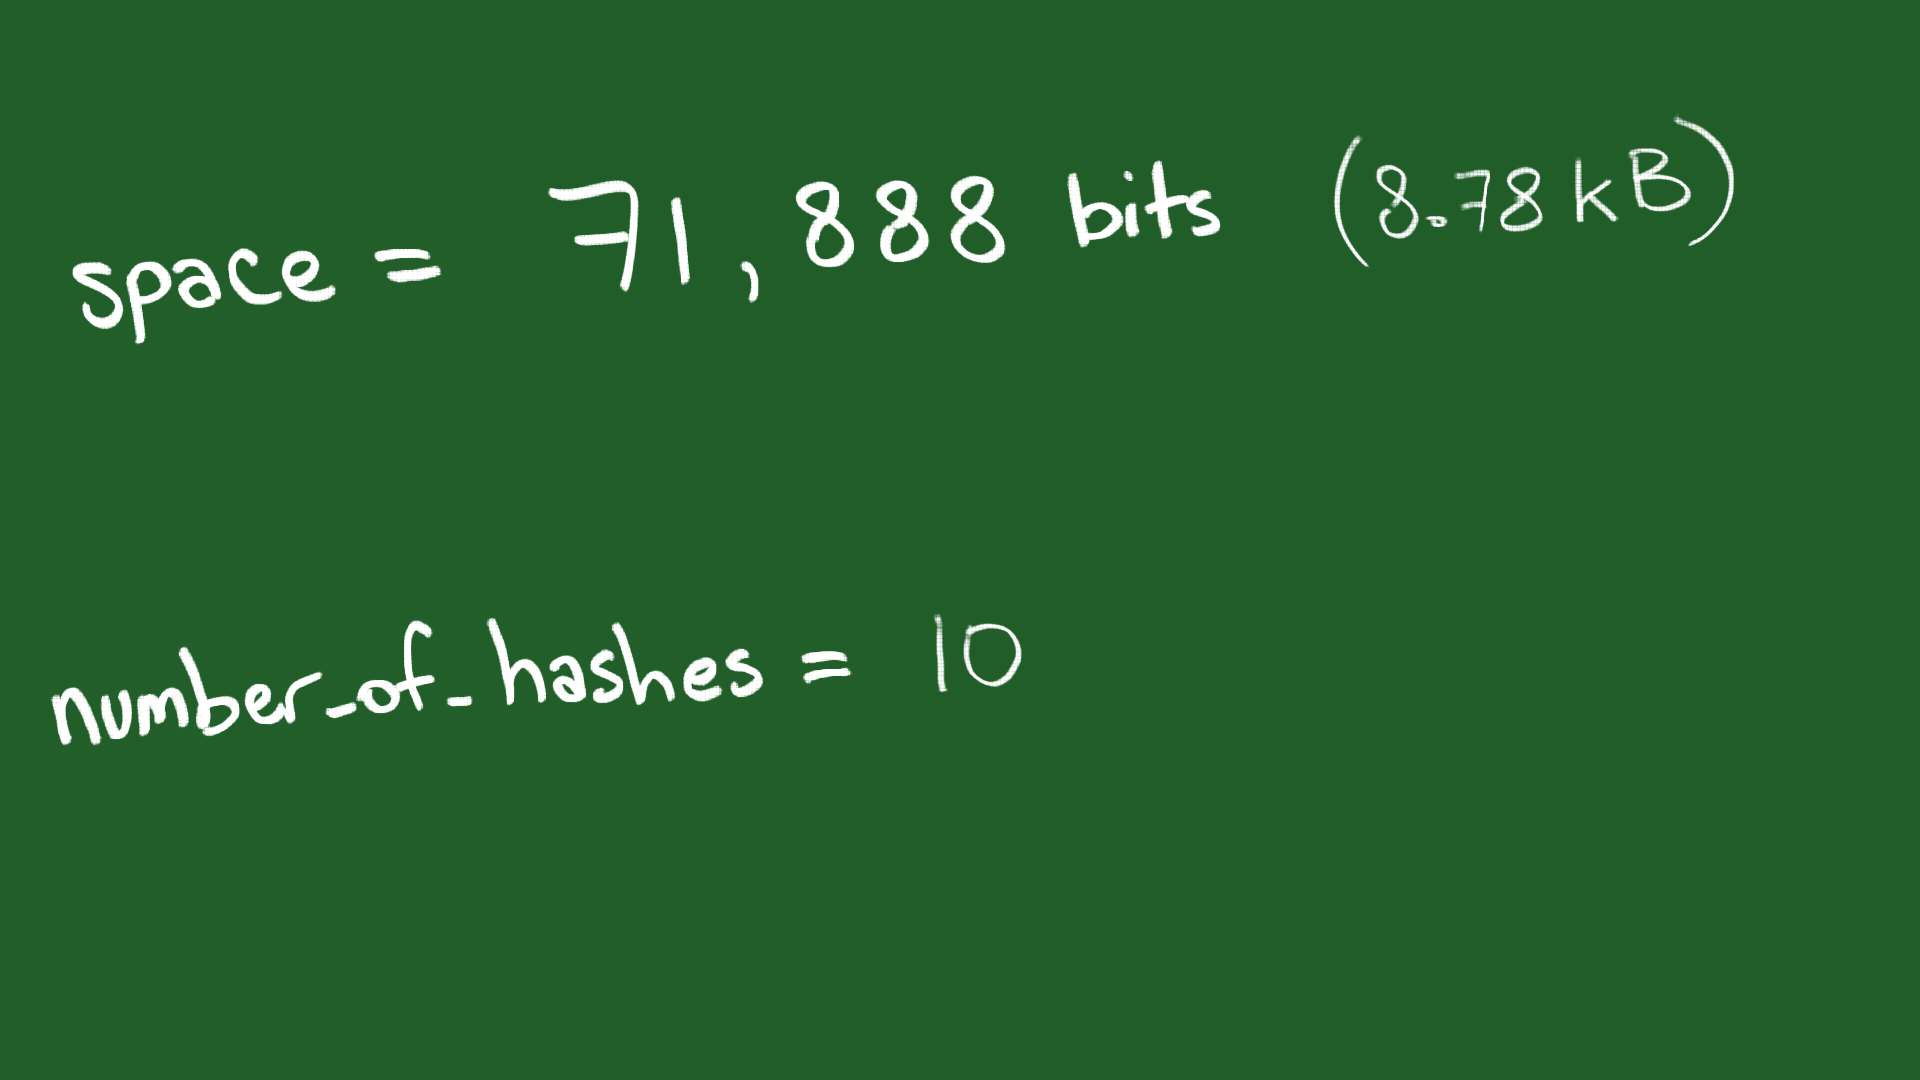 space = 71,888 bits (8.78 kB)
number_of_hashes = 10